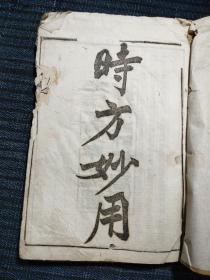 時方妙用